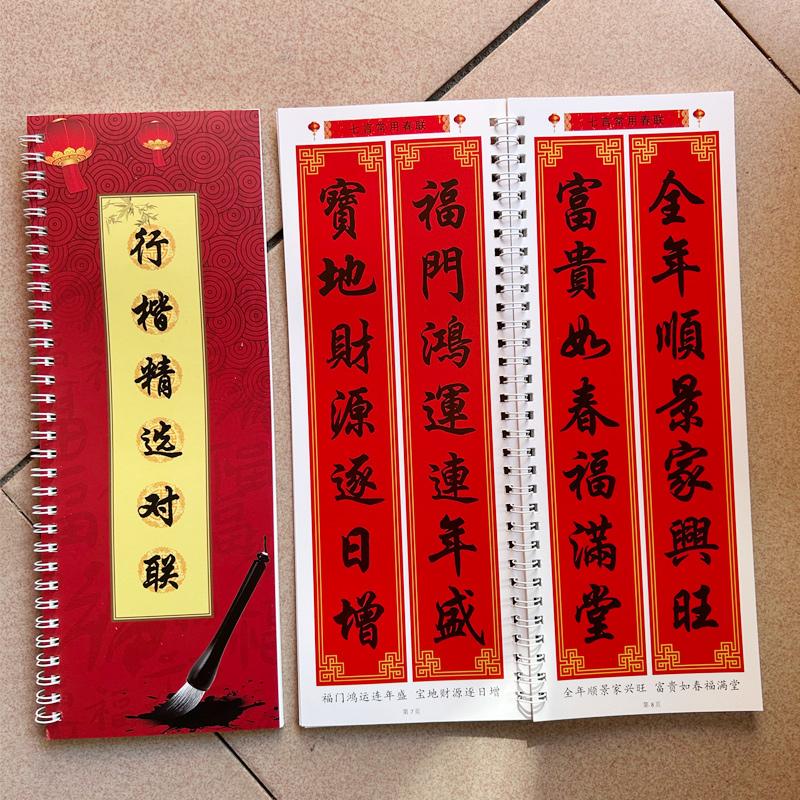 行楷精选对联
七言常用春联
福門鴻運連年盛
寶地財源逐日增
福门鸿运连年盛 宝地财源逐日增
第7页
七言常用春联
全年順景家興旺
富貴如春福滿堂
全年顺景家兴旺 富贵如春福满堂
第8页